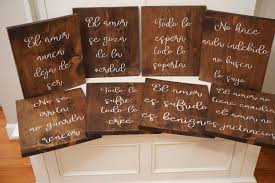 El amor
nunca
deja de
ser
El amor
se goza
de la
verdad
Todo lo
espera
todo lo
soporta
No hace
nada indebido
no busca
lo suyo
No se
irrita
no guarda
rencor
Todo lo
sufre
todo lo
cree
El amor
es sufrido
es benigno
El amor no
tiene envidia
el amor no es
jactancioso